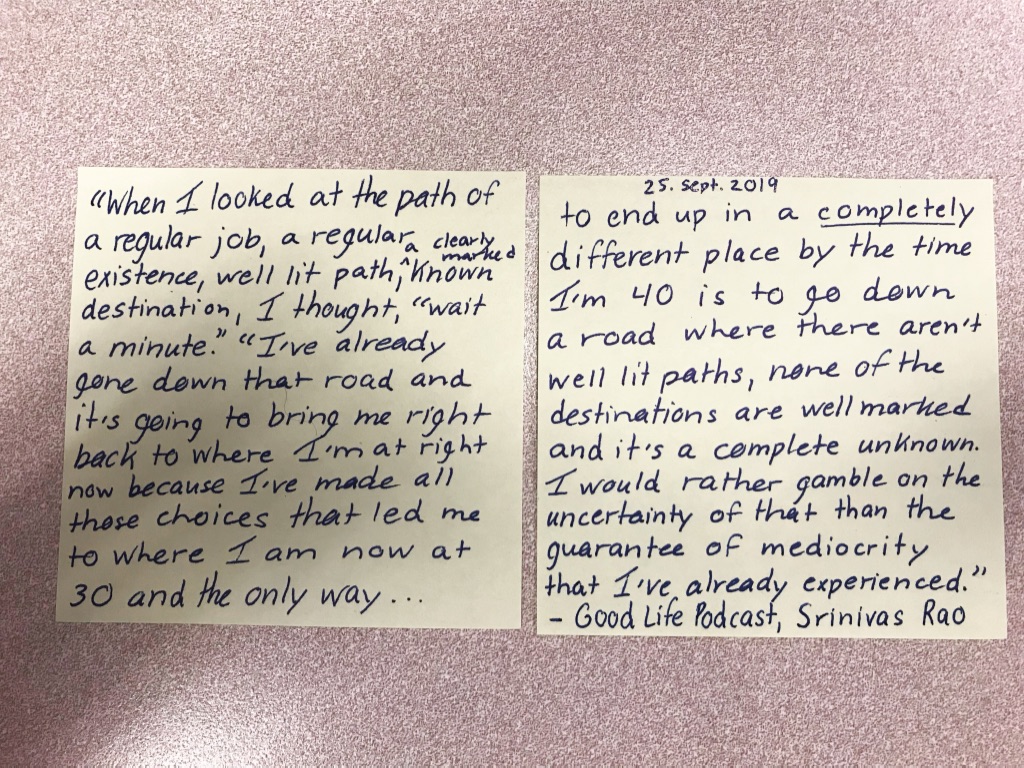 "When I looked at the path of
a regular job, a regular
existence, well lit path, a clearly marked known
destination, I thought, "wait
a minute." "I've already
gone down that road and
it's going to bring me right
back to where I'm at right
now because I've made all
those choices that led me
to where I am now at
30 and the only way...
25. Sept. 2019
to end up in a completely
different place by the time
I'm 40 is to go down
a road where there aren't
well lit paths, none of the
destinations are well marked
and it's a complete unknown.
I would rather gamble on the
uncertainty of that than the
guarantee of mediocrity
that I've already experienced."
- Good Life Podcast, Srinivas Rao